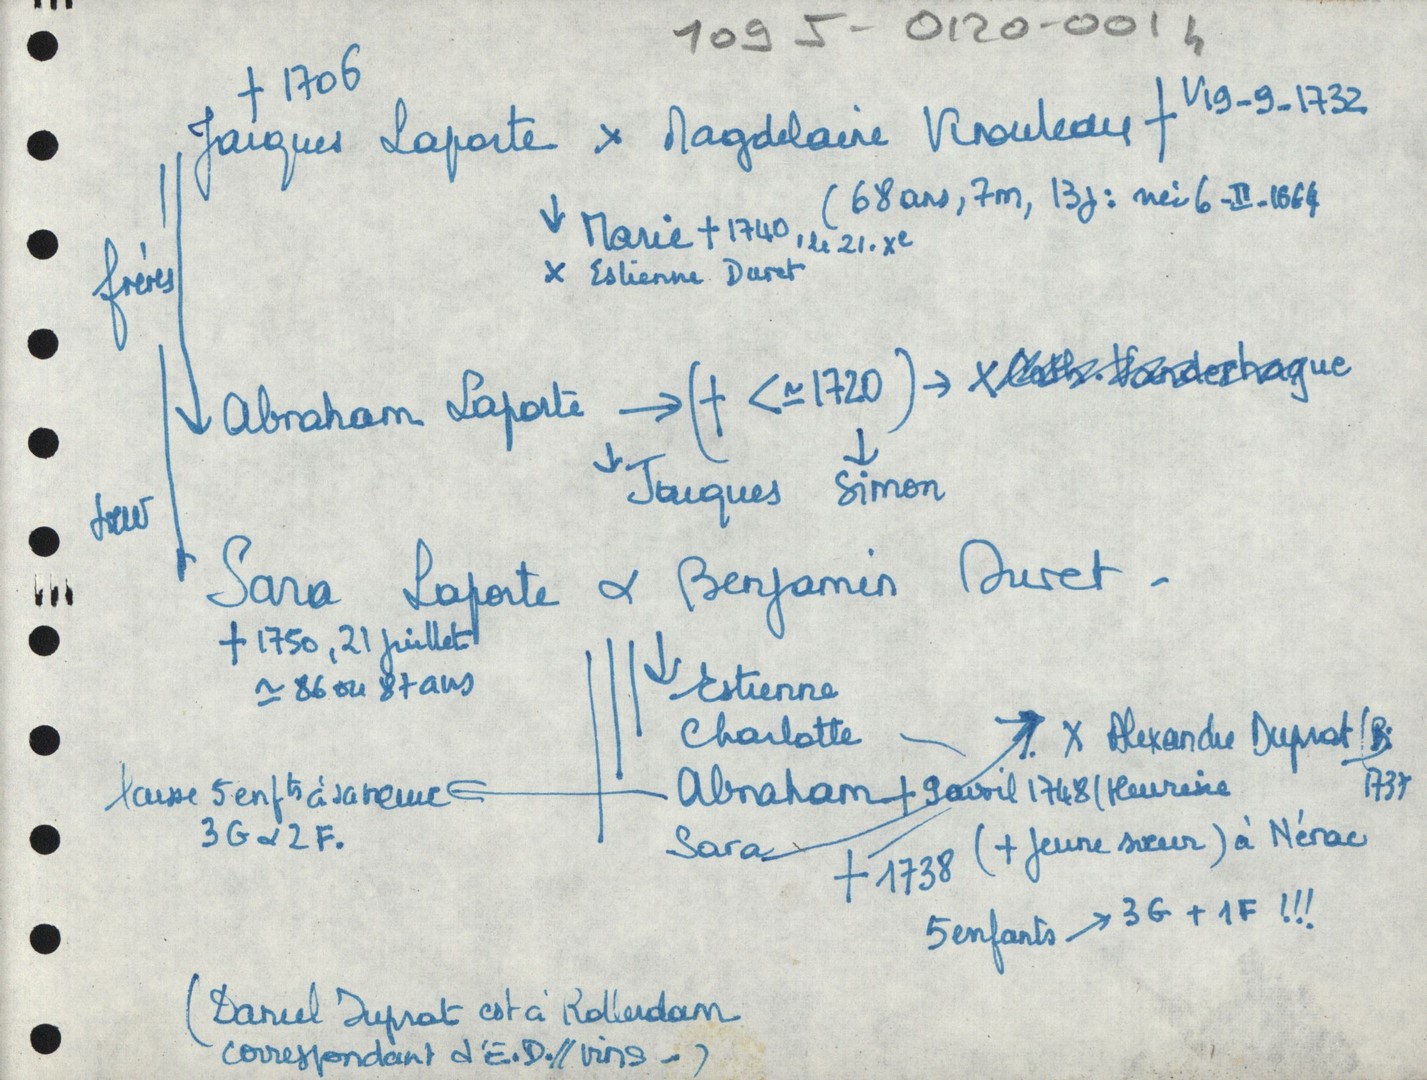 109 J - 0120-001 4
+ 1706
Jacques Laporte x Magdelaine + V19-9-1732
(68 ans, 7m, 13j: née 6-II-1664
↓ Marie + 1740, le 21. Xe
x Estienne Duret
frères
Abraham Laporte → (+ < ≃ 1720) → x Vanderhague
↓ Jacques ↓ Simon
sœur
Sara Laporte & Benjamin Duret -
+ 1750, 21 juillet
≃ 86 ou 87 ans
↓ Estienne
Charlotte x Alexandre Duprat
laisse 5 enfts à sa veuve Abraham + 9 avril 1748
3 G & 2 F.
Sara + 1738 (+ jeune sœur) à Nérac
5 enfants → 3 G + 1 F !!!
(Daniel Duprat est à Rotterdam
correspondant d'E.D. // vins - )